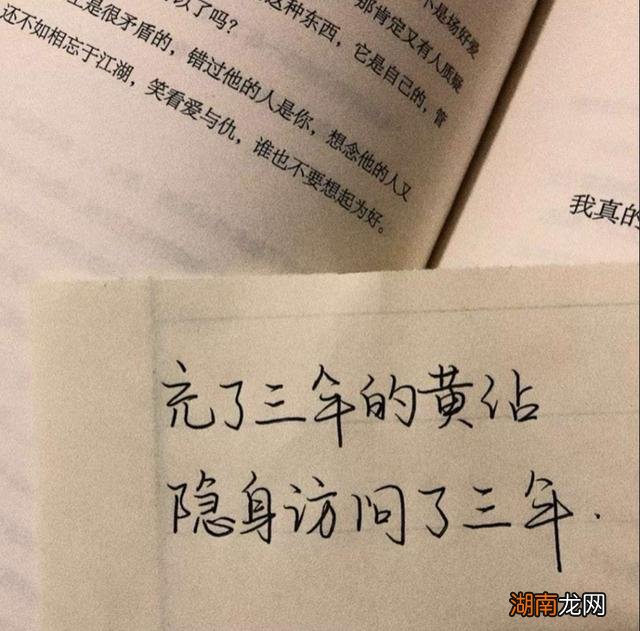 不是场好爱
那肯定又有人质疑
这种东西，它是自己的，管
以了吗？
上是很矛盾的，错过他的人是你，想念他的人又
还不如相忘于江湖，笑看爱与仇，谁也不要想起为好。
我真的
充了三年的黄钻
隐身访问了三年.
湖南龙网